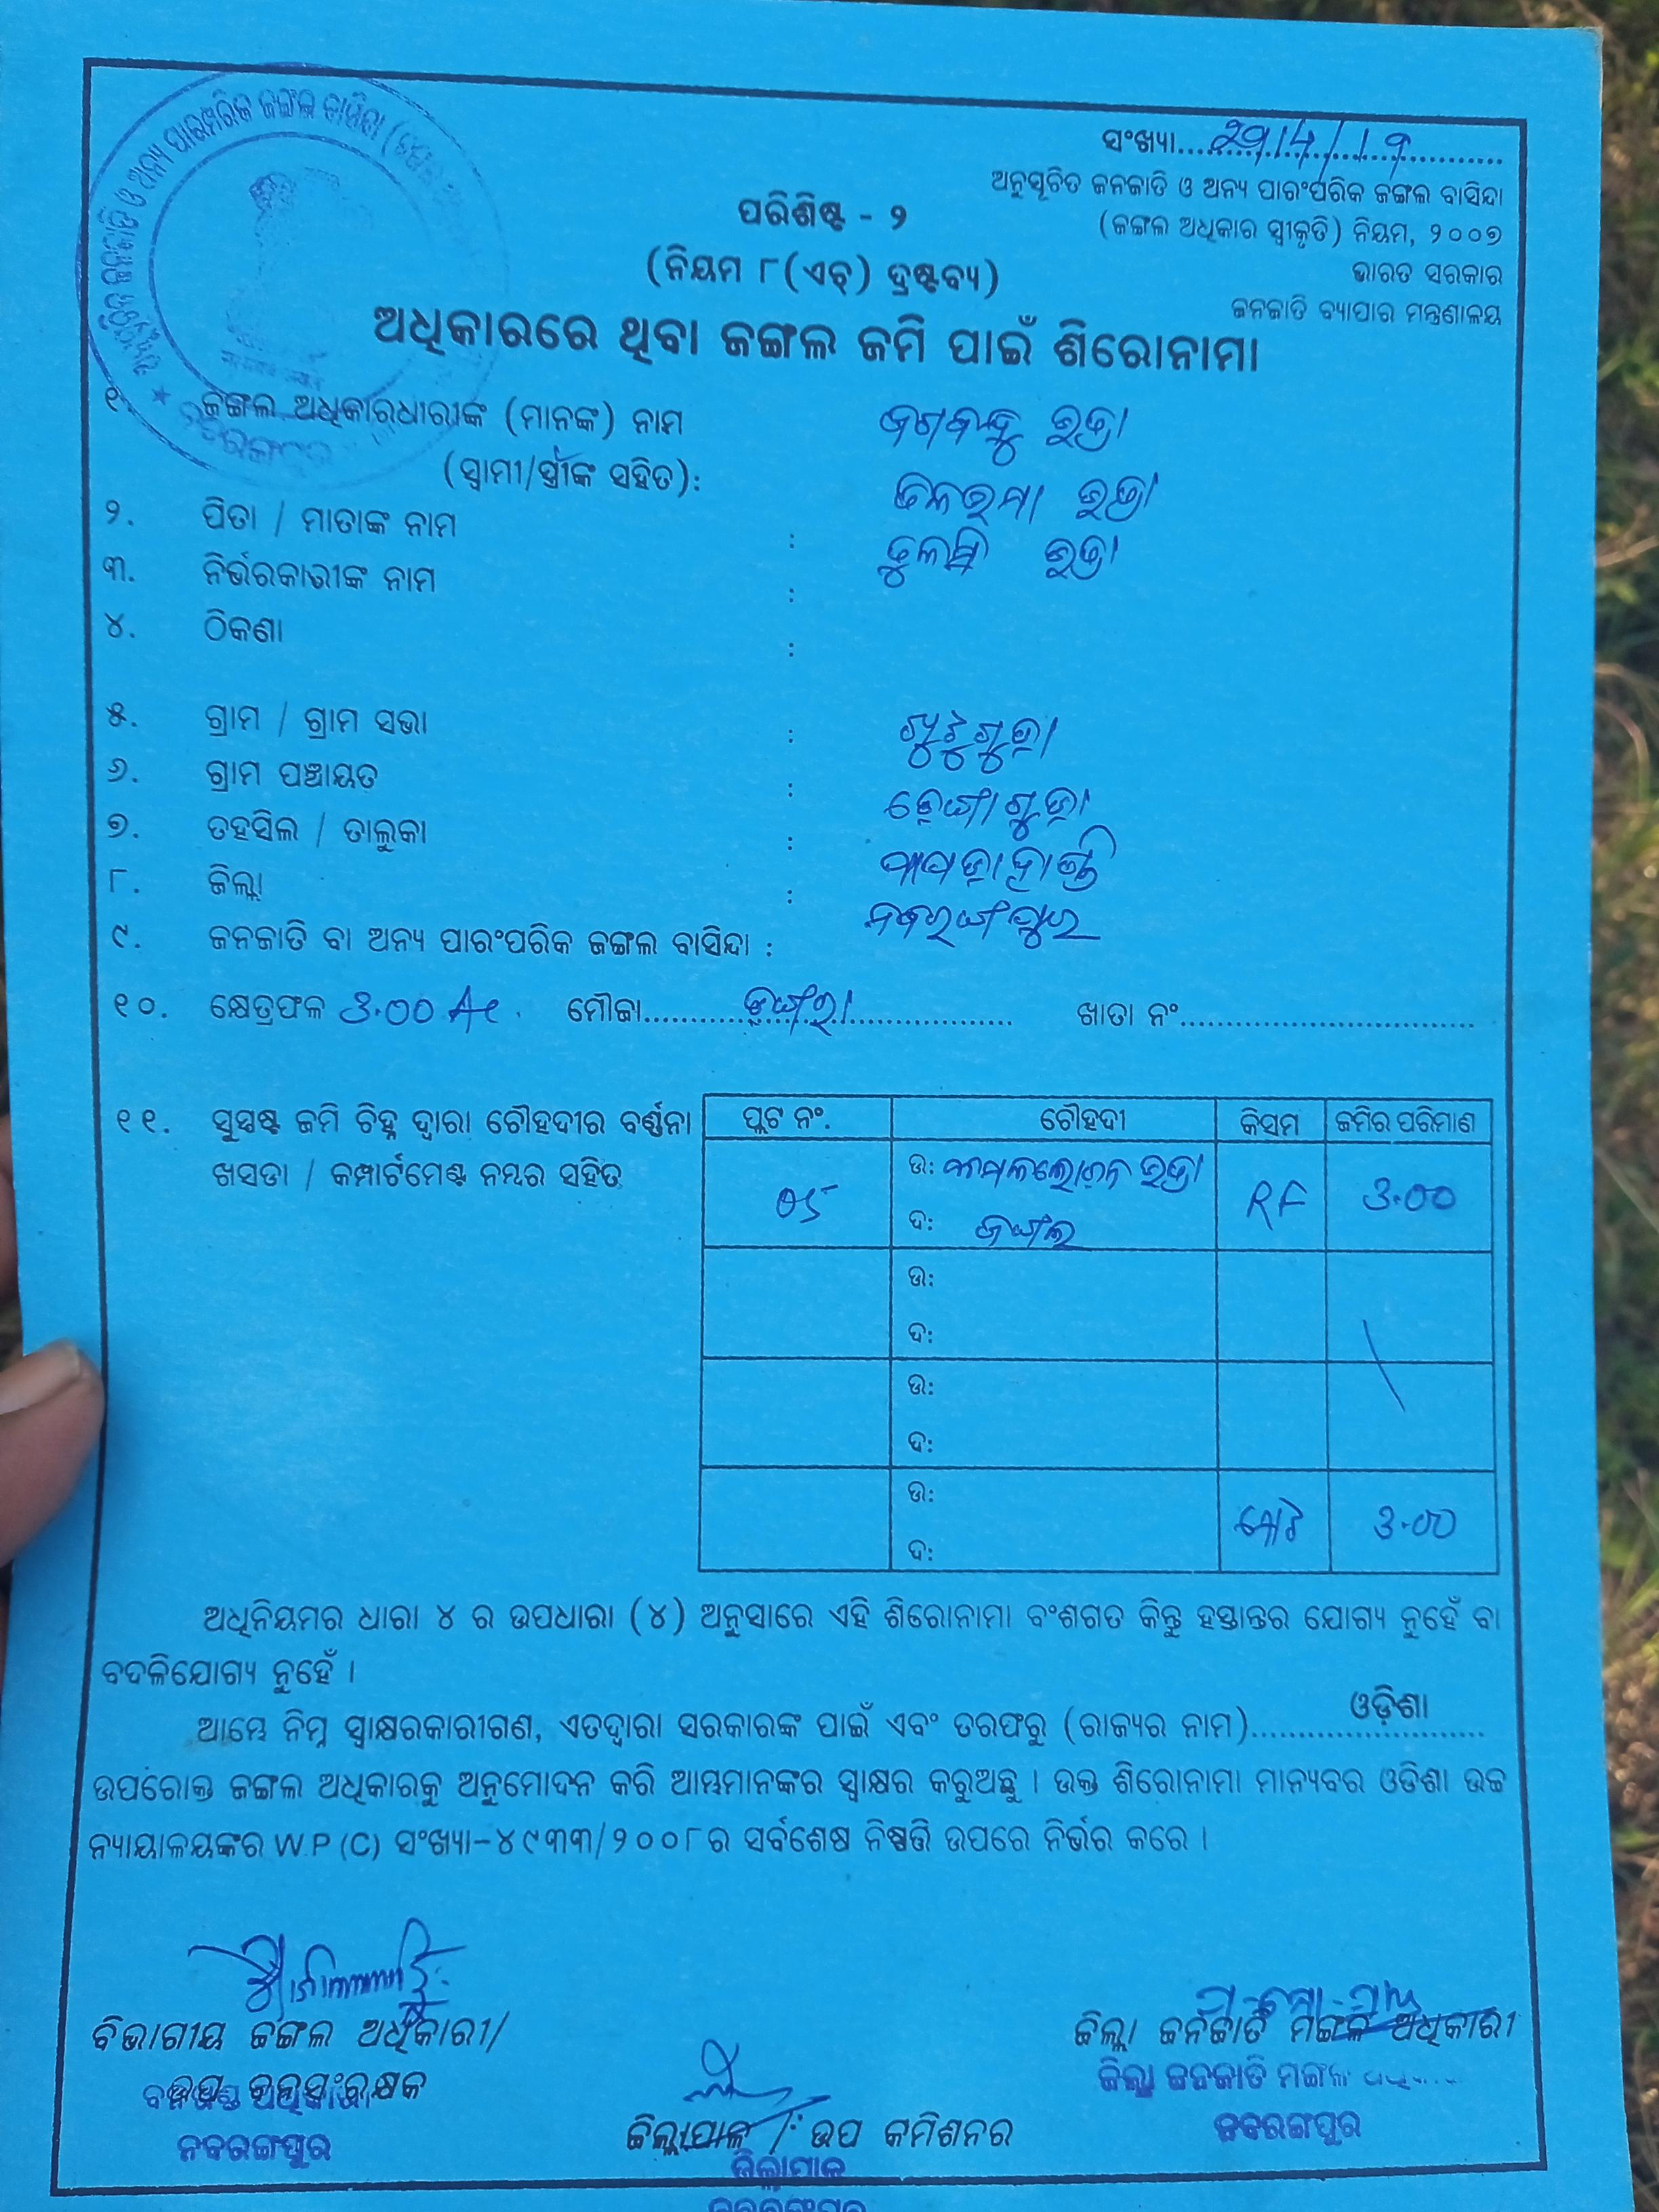 ସଂଖ୍ୟା.....
ଅନୁସୂଚିତ ଜନଜାତି ଓ ଅନ୍ୟ ପାରଂପରିକ ଜଙ୍ଗଲ ବାସିନ୍ଦା
(ଜଙ୍ଗଲ ଅଧିକାର ସ୍ୱୀକୃତି) ନିୟମ, ୨୦୦୭
ଭାରତ ସରକାର
ଜନଜାତି ବ୍ୟାପାର ମନ୍ତ୍ରଣାଳୟ
ପରିଶିଷ୍ଟ - ୨
(ନିୟମ ୮(ଏଚ୍) ଦ୍ରଷ୍ଟବ୍ୟ)
ଅଧିକାରରେ ଥିବା ଜଙ୍ଗଲ ଜମି ପାଇଁ ଶିରୋନାମା
୧. ଜଙ୍ଗଲ ଅଧିକାରଧାରୀଙ୍କ (ମାନଙ୍କ) ନାମ ଜଗବନ୍ଧୁ ଭତ୍ରା
(ସ୍ୱାମୀ/ସ୍ତ୍ରୀଙ୍କ ସହିତ): ଭତ୍ରା
୨. ପିତା / ମାତାଙ୍କ ନାମ : ତୁଳସା ଭତ୍ରା
୩. ନିର୍ଭରକାରୀଙ୍କ ନାମ :
୪. ଠିକଣା :
୫. ଗ୍ରାମ / ଗ୍ରାମ ସଭା :
୬. ଗ୍ରାମ ପଞ୍ଚାୟତ :
୭. ତହସିଲ / ତାଲୁକା : ପାପଡାହାଣ୍ଡି
୮. ଜିଲ୍ଲା : ନବରଙ୍ଗପୁର
୯. ଜନଜାତି ବା ଅନ୍ୟ ପାରଂପରିକ ଜଙ୍ଗଲ ବାସିନ୍ଦା :
୧୦. କ୍ଷେତ୍ରଫଳ 3.00 Ac. ମୌଜା..... ଖାତା ନଂ.....
୧୧. ସୁସ୍ପଷ୍ଟ ଜମି ଚିହ୍ନ ଦ୍ୱାରା ଚୌହଦୀର ବର୍ଣ୍ଣନା
ଖସଡା / କମ୍ପାର୍ଟମେଣ୍ଟ ନମ୍ବର ସହିତ
ପ୍ଲଟ ନଂ. ଚୌହଦୀ କିସମ ଜମିର ପରିମାଣ
05 ଉ: କମଳଲୋଚନ ଭତ୍ରା RF 3.00
ଦ: ଜଙ୍ଗଲ
ଉ:
ଦ:
ଉ:
ଦ:
ଉ: ମୋଟ 3.00
ଦ:
ଅଧିନିୟମର ଧାରା ୪ ର ଉପଧାରା (୪) ଅନୁସାରେ ଏହି ଶିରୋନାମା ବଂଶଗତ କିନ୍ତୁ ହସ୍ତାନ୍ତର ଯୋଗ୍ୟ ନୁହେଁ ବା
ବଦଳିଯୋଗ୍ୟ ନୁହେଁ ।
ଆମ୍ଭେ ନିମ୍ନ ସ୍ୱାକ୍ଷରକାରୀଗଣ, ଏତଦ୍ୱାରା ସରକାରଙ୍କ ପାଇଁ ଏବଂ ତରଫରୁ (ରାଜ୍ୟର ନାମ)..... ଓଡ଼ିଶା
ଉପରୋକ୍ତ ଜଙ୍ଗଲ ଅଧିକାରକୁ ଅନୁମୋଦନ କରି ଆମ୍ଭମାନଙ୍କର ସ୍ୱାକ୍ଷର କରୁଅଛୁ । ଉକ୍ତ ଶିରୋନାମା ମାନ୍ୟବର ଓଡିଶା ଉଚ୍ଚ
ନ୍ୟାୟାଳୟଙ୍କର W.P (C) ସଂଖ୍ୟା-୪୯୩୩/୨୦୦୮ର ସର୍ବଶେଷ ନିଷ୍ପତ୍ତି ଉପରେ ନିର୍ଭର କରେ ।
ବିଭାଗୀୟ ଜଙ୍ଗଲ ଅଧିକାରୀ/
ଉପ ବନସଂରକ୍ଷକ
ନବରଙ୍ଗପୁର
ଜିଲ୍ଲାପାଳ / ଉପ କମିଶନର
ଜିଲ୍ଲାପାଳ
ନବରଙ୍ଗପୁର
ଜିଲ୍ଲା ଜନଜାତି ମଙ୍ଗଳ ଅଧିକାରୀ
ଜିଲ୍ଲା ଜନଜାତି ମଙ୍ଗଳ
ନବରଙ୍ଗପୁର